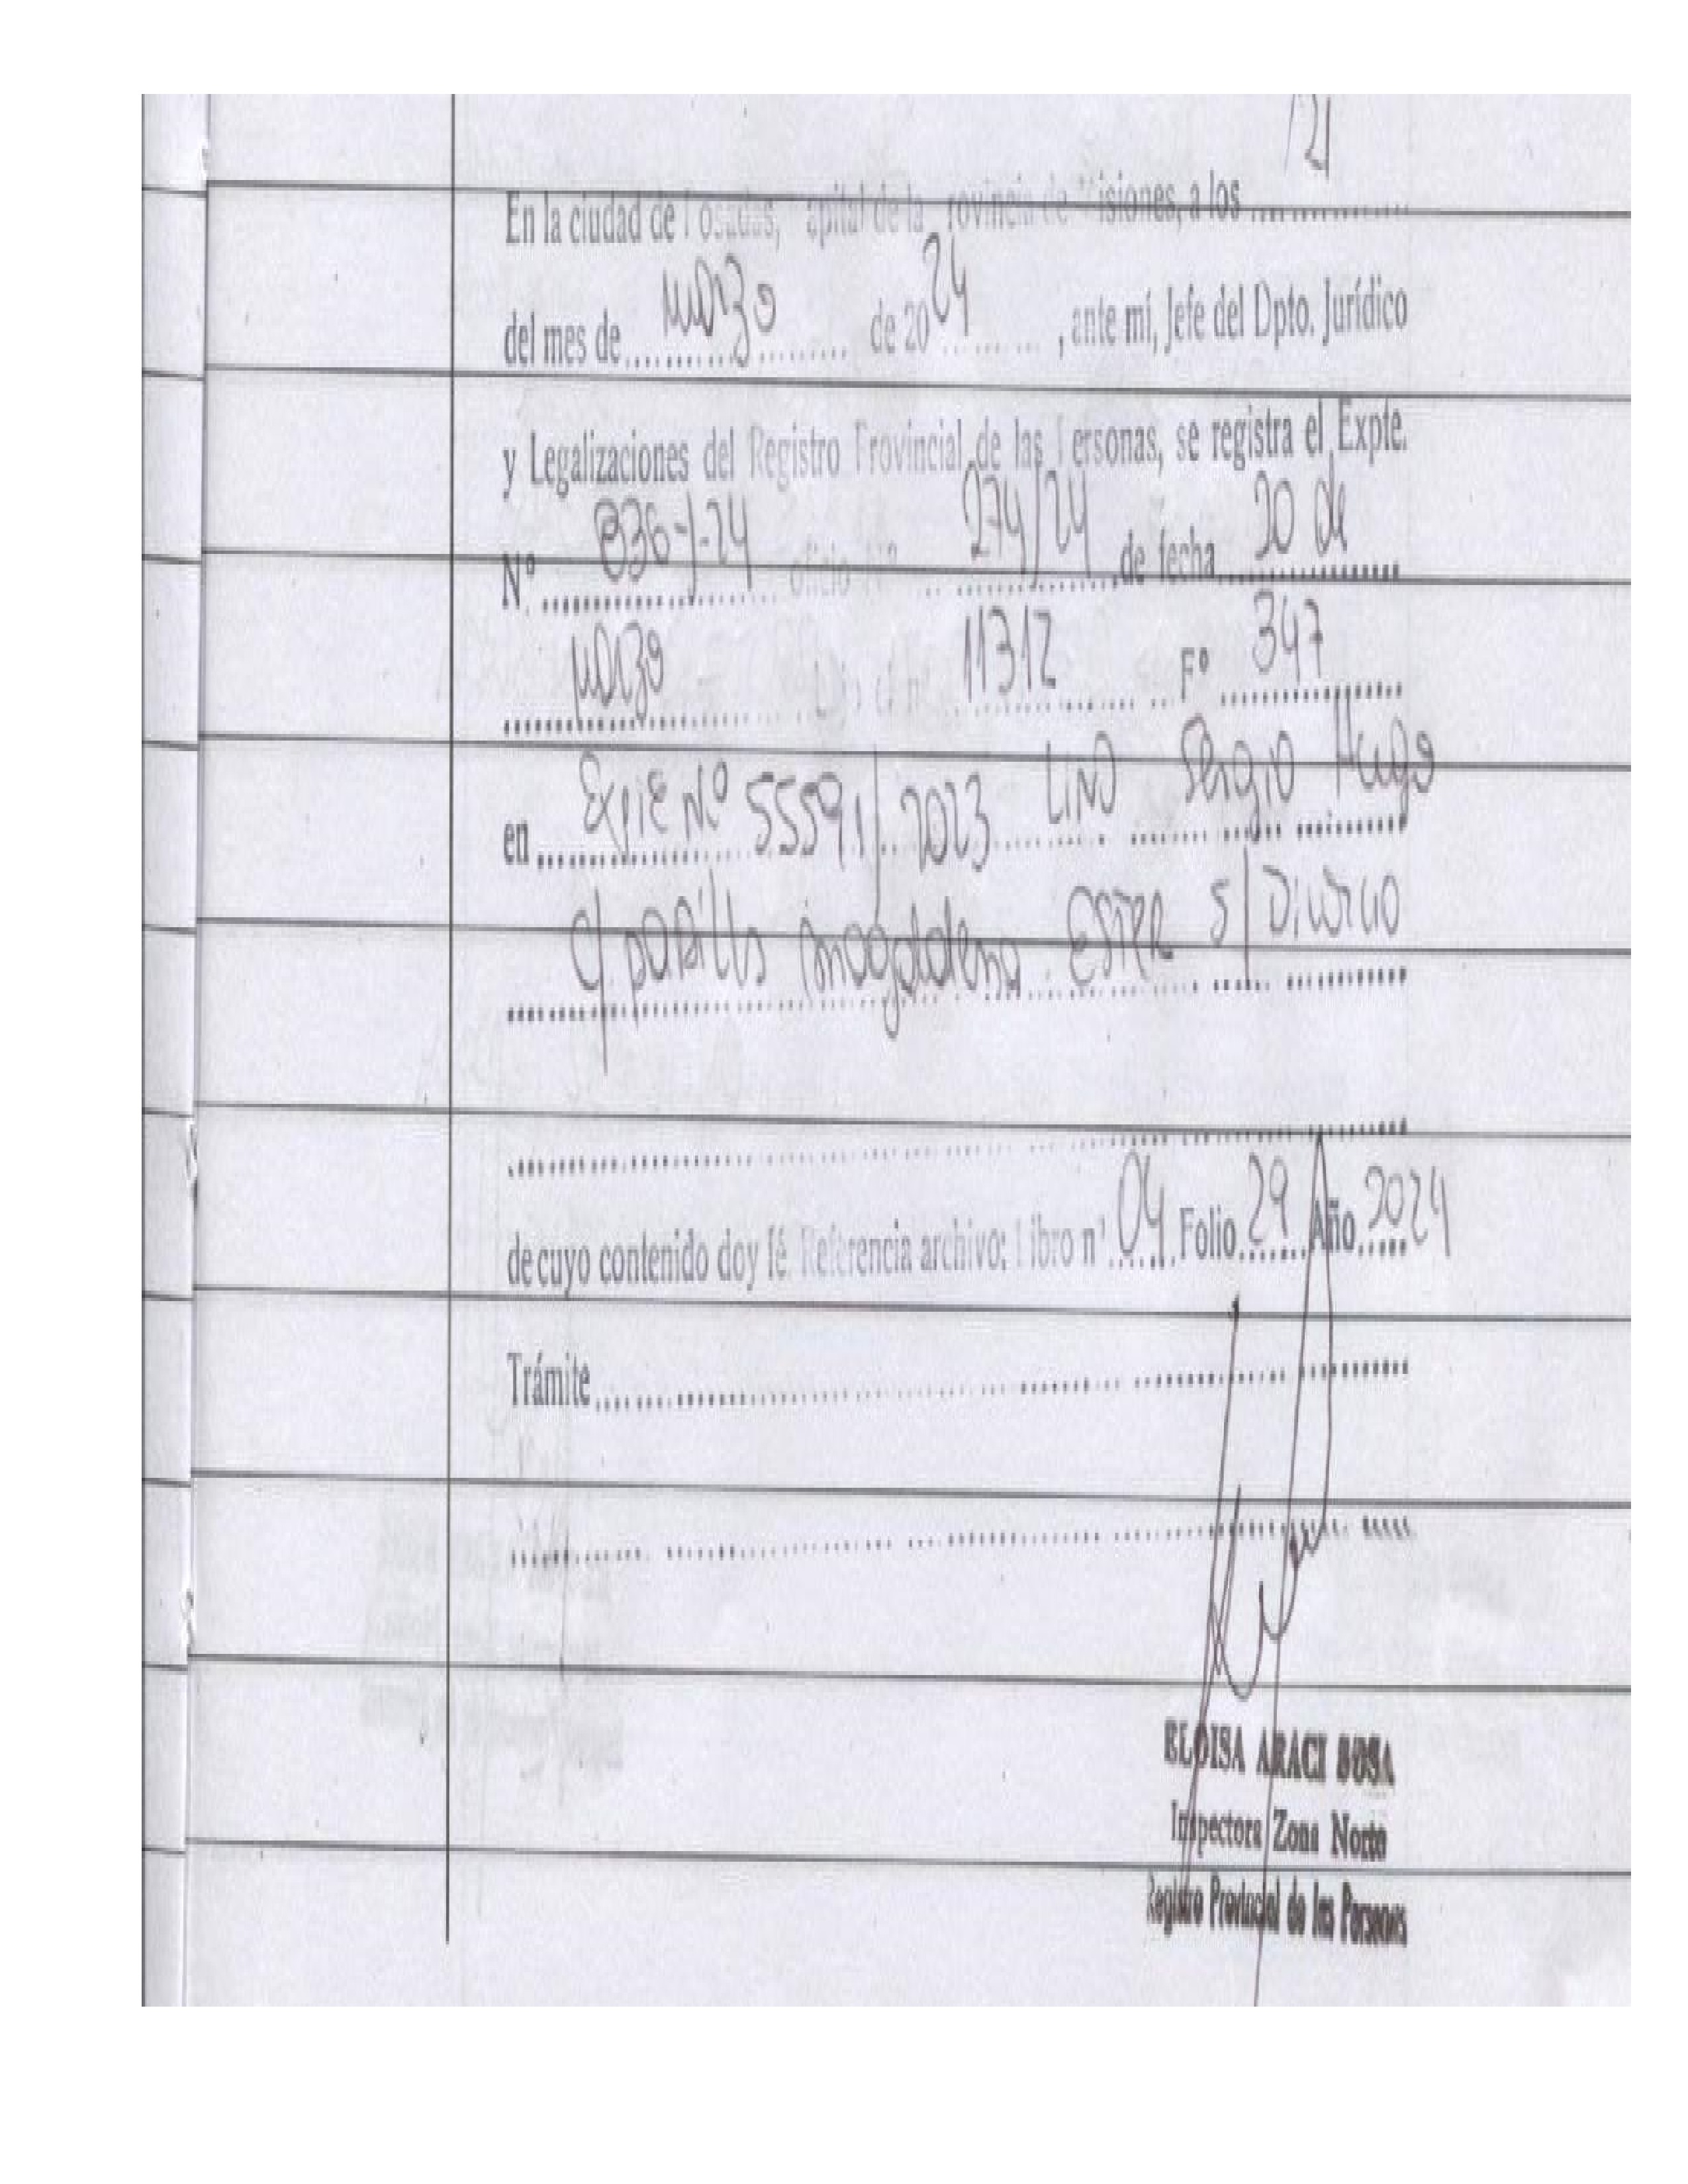 21
En la ciudad de Posadas, capital de la provincia de Misiones, a los
del mes de marzo de 2024, ante mí, Jefe del Dpto. Jurídico
y Legalizaciones del Registro Provincial de las Personas, se registra el Expte.
Nº 836-J-24 oficio Nº 274/24 de fecha 20 de
marzo 11312 Fº 347
en Expte Nº 55591/2023 LINO Sergio Hugo
c/ Magdalena ESTER s/ Divorcio
de cuyo contenido doy fé. Referencia archivo: Libro nº 04 Folio 29 Año 2024
Trámite
ELOISA ARACI SOSA
Inspectora Zona Norte
Registro Provincial de las Personas